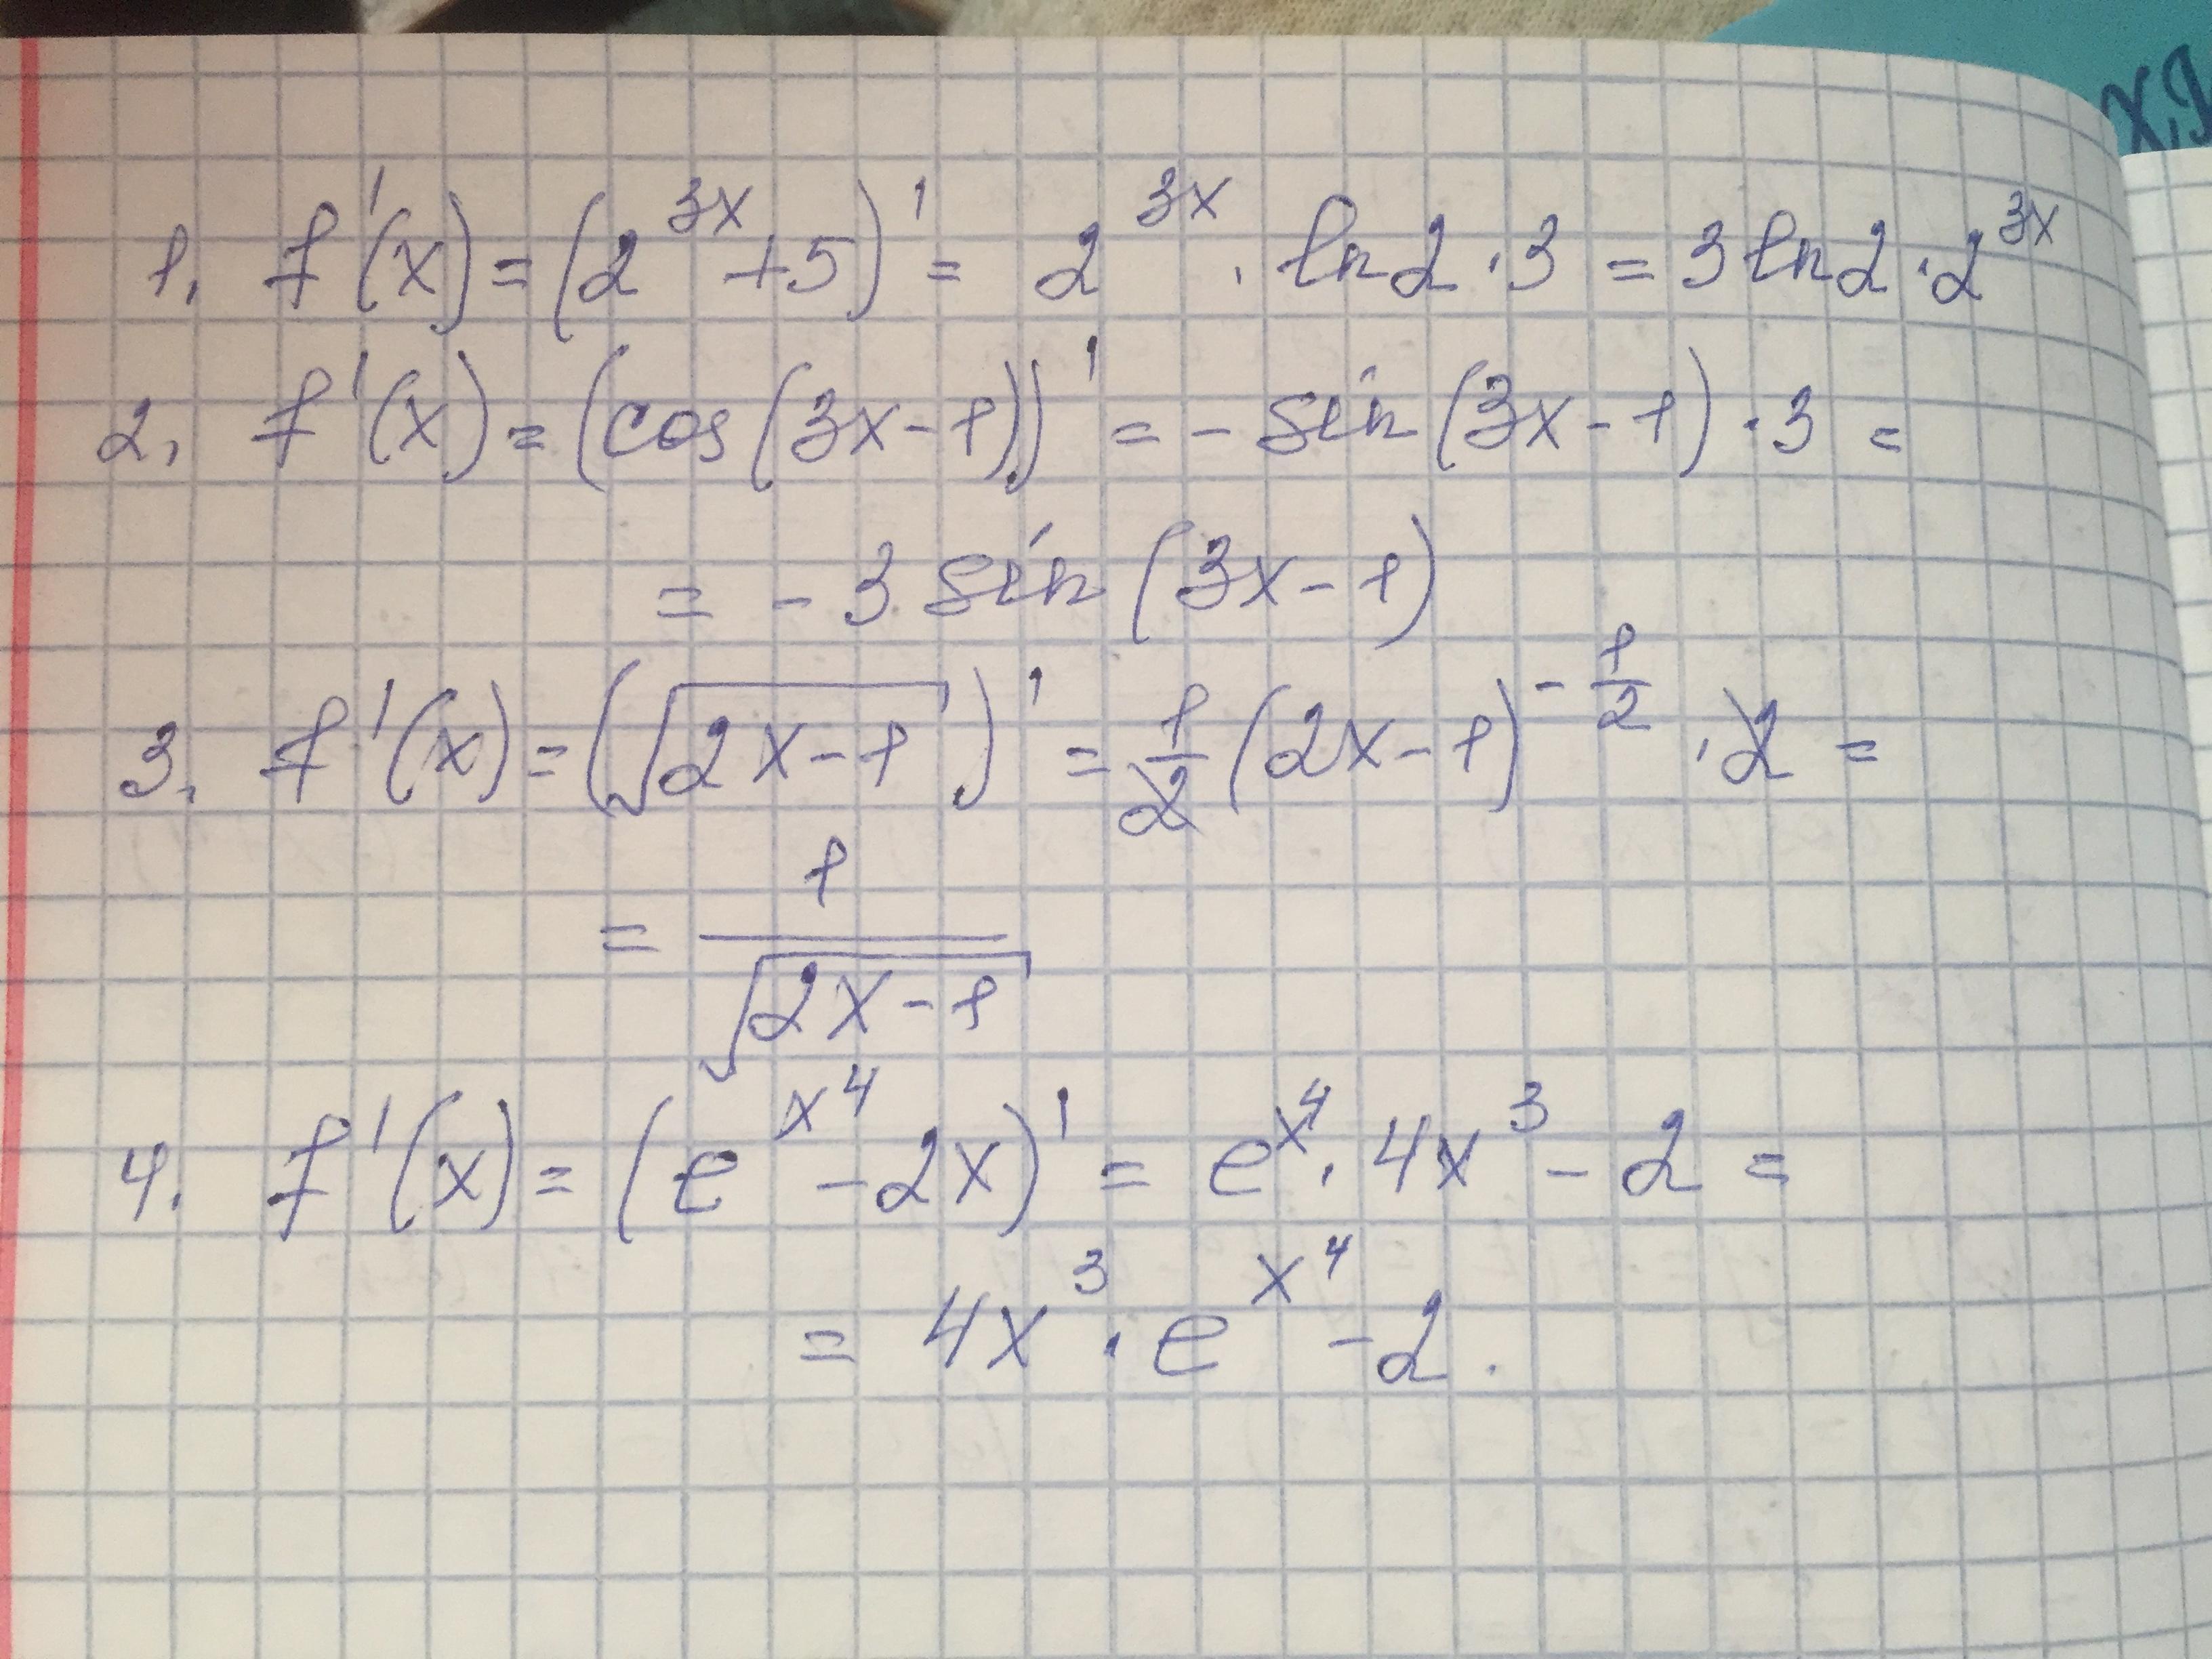 1. f'(x) = (2^{3x} + 5)' = 2^{3x} · ln2 · 3 = 3 ln2 · 2^{3x}
2. f'(x) = (cos(3x - 1))' = - sin(3x - 1) · 3 =
= - 3 sin(3x - 1)
3. f'(x) = (√(2x - 1))' = 1/2 (2x - 1)^{-1/2} · 2 =
= 1/√(2x - 1)
4. f'(x) = (e^{x^4} - 2x)' = e^{x^4} · 4x^3 - 2 =
= 4x^3 · e^{x^4} - 2.